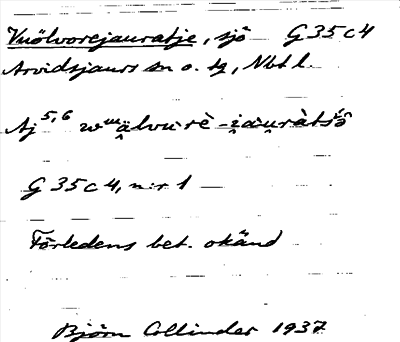 Vuölvorejauratje, sjö G 35 c 4
Arvidsjaurs sn o. tg, Nbtl.
Aj 5,6
G 35 c 4, n:r 1
Förledens bet. okänd
Björn Collinder 1937